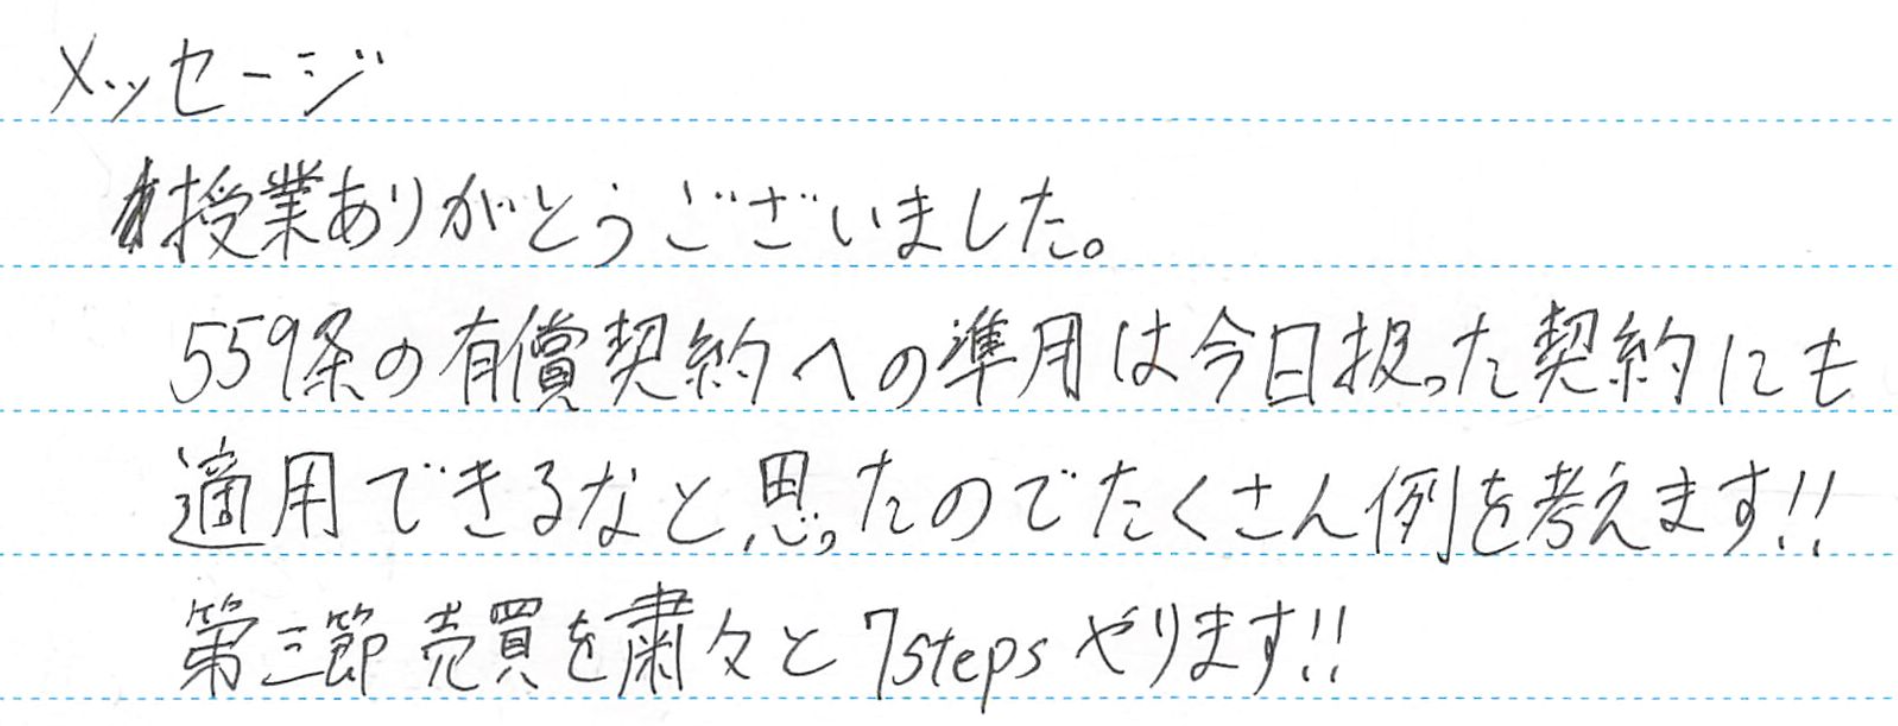 メッセージ
授業ありがとうございました。
559条の有償契約への準用は今日扱った契約にも
適用できるなと思ったのでたくさん例を考えます!!
第三節売買を粛々と7stepsやります!!